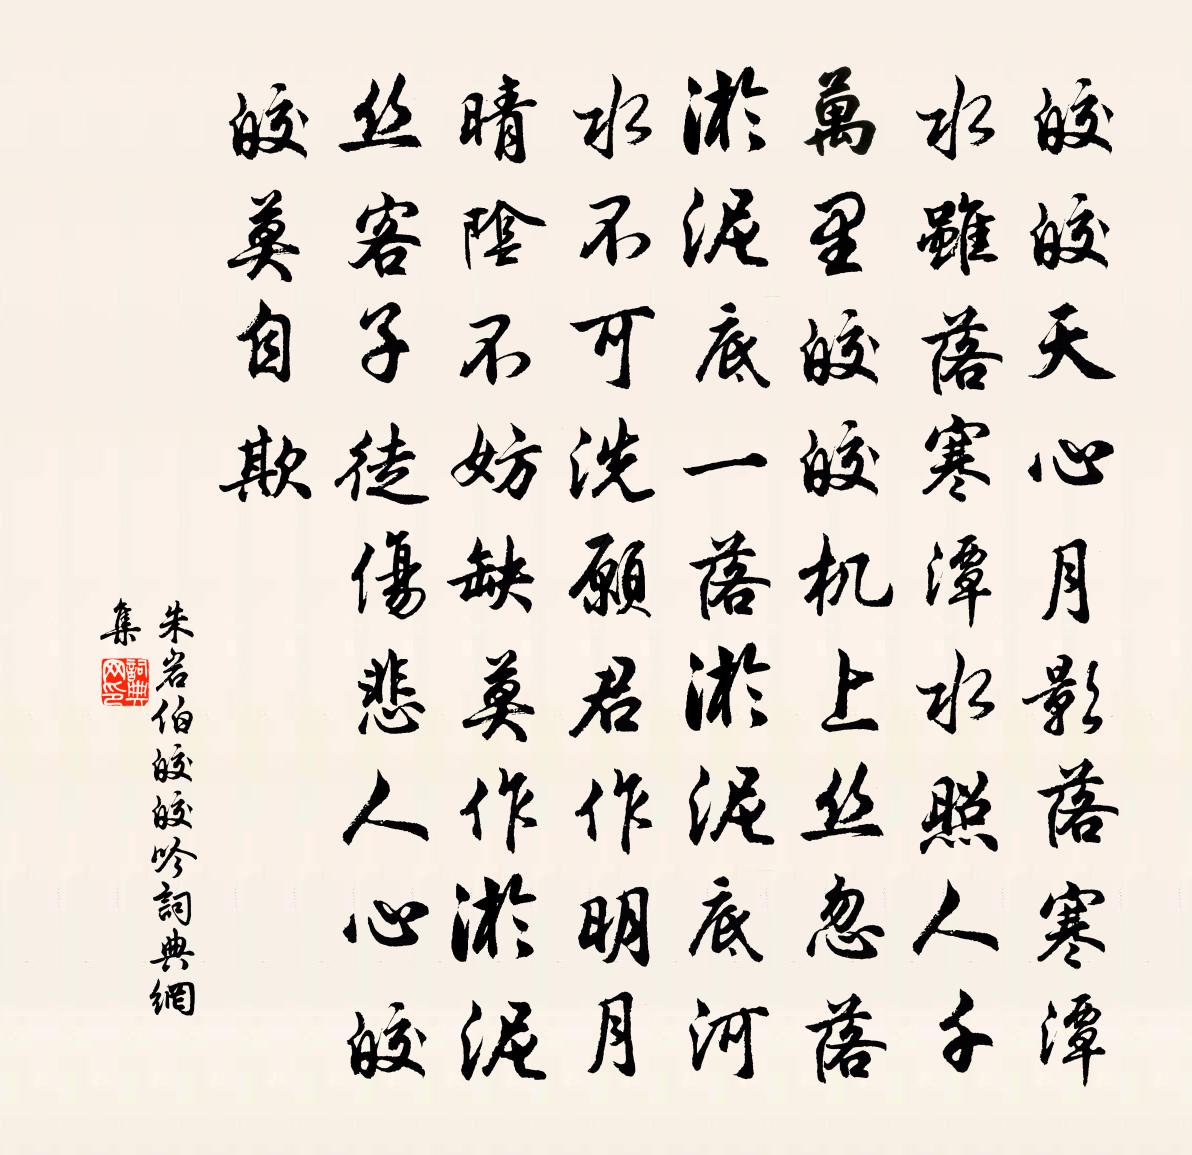 皎皎天心月影落寒潭
水雖落寒潭水照人千
萬里皎皎机上丝忽落
淤泥底一落淤泥底河
水不可洗願君作明月
晴陰不妨缺莫作淤泥
丝客子徒傷悲人心皎
皎莫自欺
朱岩伯皎皎吟詞典網
集
詞典网印